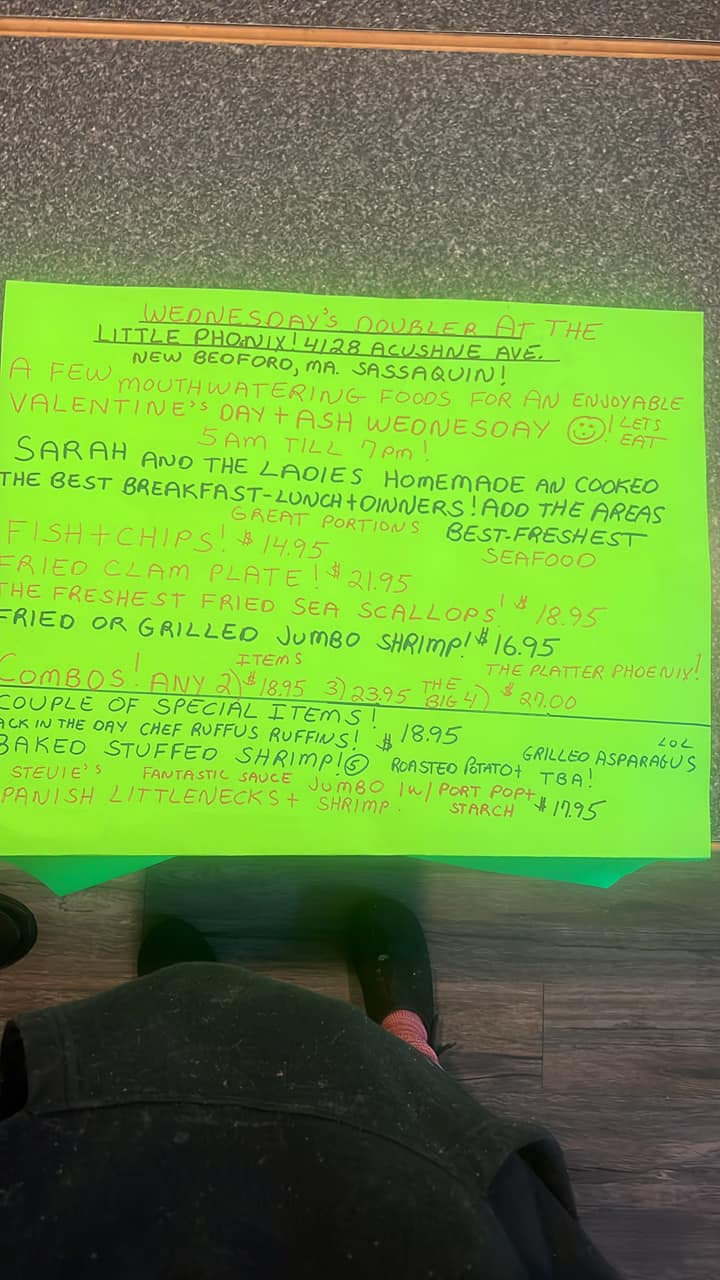 WEDNESDAY'S DOUBLER AT THE
LITTLE PHONIX! 4128 ACUSHNE AVE.
NEW BEDFORD, MA. SASSAQUIN!
A FEW MOUTHWATERING FOODS FOR AN ENJOYABLE
VALENTINE'S DAY + ASH WEDNESDAY ! LETS EAT
5AM TILL 7PM!
SARAH AND THE LADIES HOMEMADE AN COOKED
THE BEST BREAKFAST-LUNCH + DINNERS! ADD THE AREAS
GREAT PORTIONS BEST-FRESHEST
SEAFOOD
FISH + CHIPS! $14.95
FRIED CLAM PLATE! $21.95
THE FRESHEST FRIED SEA SCALLOPS! $18.95
FRIED OR GRILLED JUMBO SHRIMP! $16.95
ITEMS THE PLATTER PHOENIX!
COMBOS! ANY 2) $18.95 3) 23.95 THE BIG 4) $27.00
COUPLE OF SPECIAL ITEMS!
ACK IN THE DAY CHEF RUFFUS RUFFINS! $18.95 LOL
BAKED STUFFED SHRIMP! 6 ROASTED POTATO + GRILLED ASPARAGUS
TBA!
STEVIE'S FANTASTIC SAUCE JUMBO 1W/ PORT POP +
PANISH LITTLENECKS + SHRIMP. STARCH $17.95